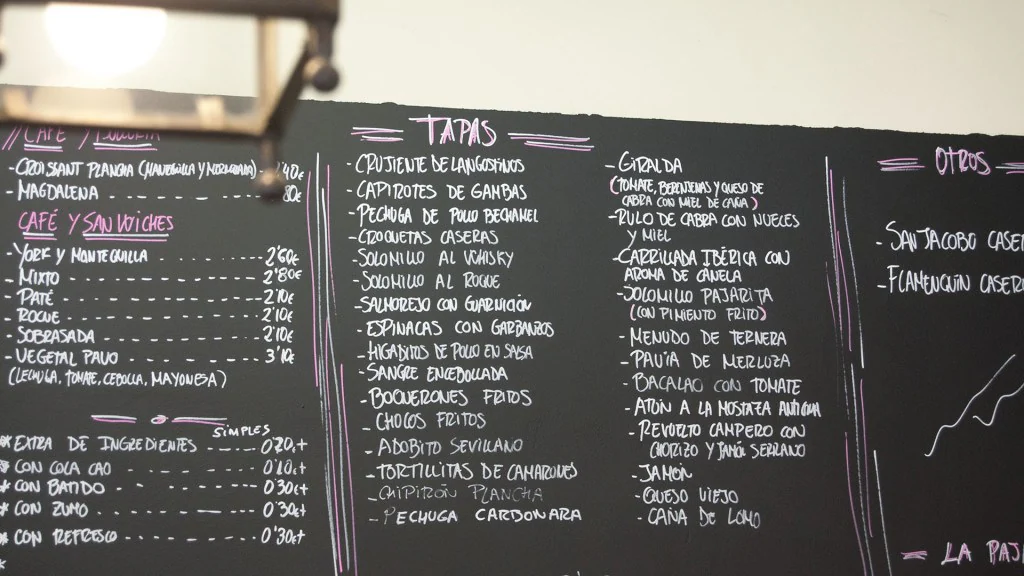 CAFÉ Y BOLLERIA
- CROISSANT PLANCHA (MANTEQUILLA Y MERMELADA)
- MAGDALENA
CAFÉ Y SANWICHES
- YORK Y MANTEQUILLA ------- 2'60€
- MIXTO ------------- 2'80€
- PATÉ ------------- 2'10€
- ROQUE ------------- 2'10€
- SOBRASADA ----------- 2'10€
- VEGETAL PAVO --------- 3'10€
(LECHUGA, TOMATE, CEBOLLA, MAYONESA)
SIMPLES
* EXTRA DE INGREDIENTES ------ 0'20€+
* CON COLA CAO --------- 0'10€+
* CON BATIDO --------- 0'30€+
* CON ZUMO --------- 0'30€+
* CON REFRESCO --------- 0'30€+
*
TAPAS
- CRUJIENTE DE LANGOSTINOS
- CAPIROTES DE GAMBAS
- PECHUGA DE POLLO BECHAMEL
- CROQUETAS CASERAS
- SOLOMILLO AL WHISKY
- SOLOMILLO AL ROQUE
- SALMOREJO CON GUARNICIÓN
- ESPINACAS CON GARBANZOS
- HIGADITOS DE POLLO EN SALSA
- SANGRE ENCEBOLLADA
- BOQUERONES FRITOS
- CHOCOS FRITOS
- ADOBITO SEVILLANO
- TORTILLITAS DE CAMARONES
- CHIPIRÓN PLANCHA
- PECHUGA CARBONARA
- GIRALDA
(TOMATE, BERENJENAS Y QUESO DE
CABRA CON MIEL DE CAÑA)
- RULO DE CABRA CON NUECES
Y MIEL
- CARRILLADA IBÉRICA CON
AROMA DE CANELA
- SOLOMILLO PAJARITA
(CON PIMIENTO FRITO)
- MENUDO DE TERNERA
- PAVIA DE MERLUZA
- BACALAO CON TOMATE
- ATÚN A LA MOSTAZA ANTIGUA
- REVUELTO CAMPERO CON
CHORIZO Y JAMÓN SERRANO
- JAMÓN
- QUESO VIEJO
- CAÑA DE LOMO
OTROS
- SAN JACOBO CASER
- FLAMENQUIN CASER
LA PAJ